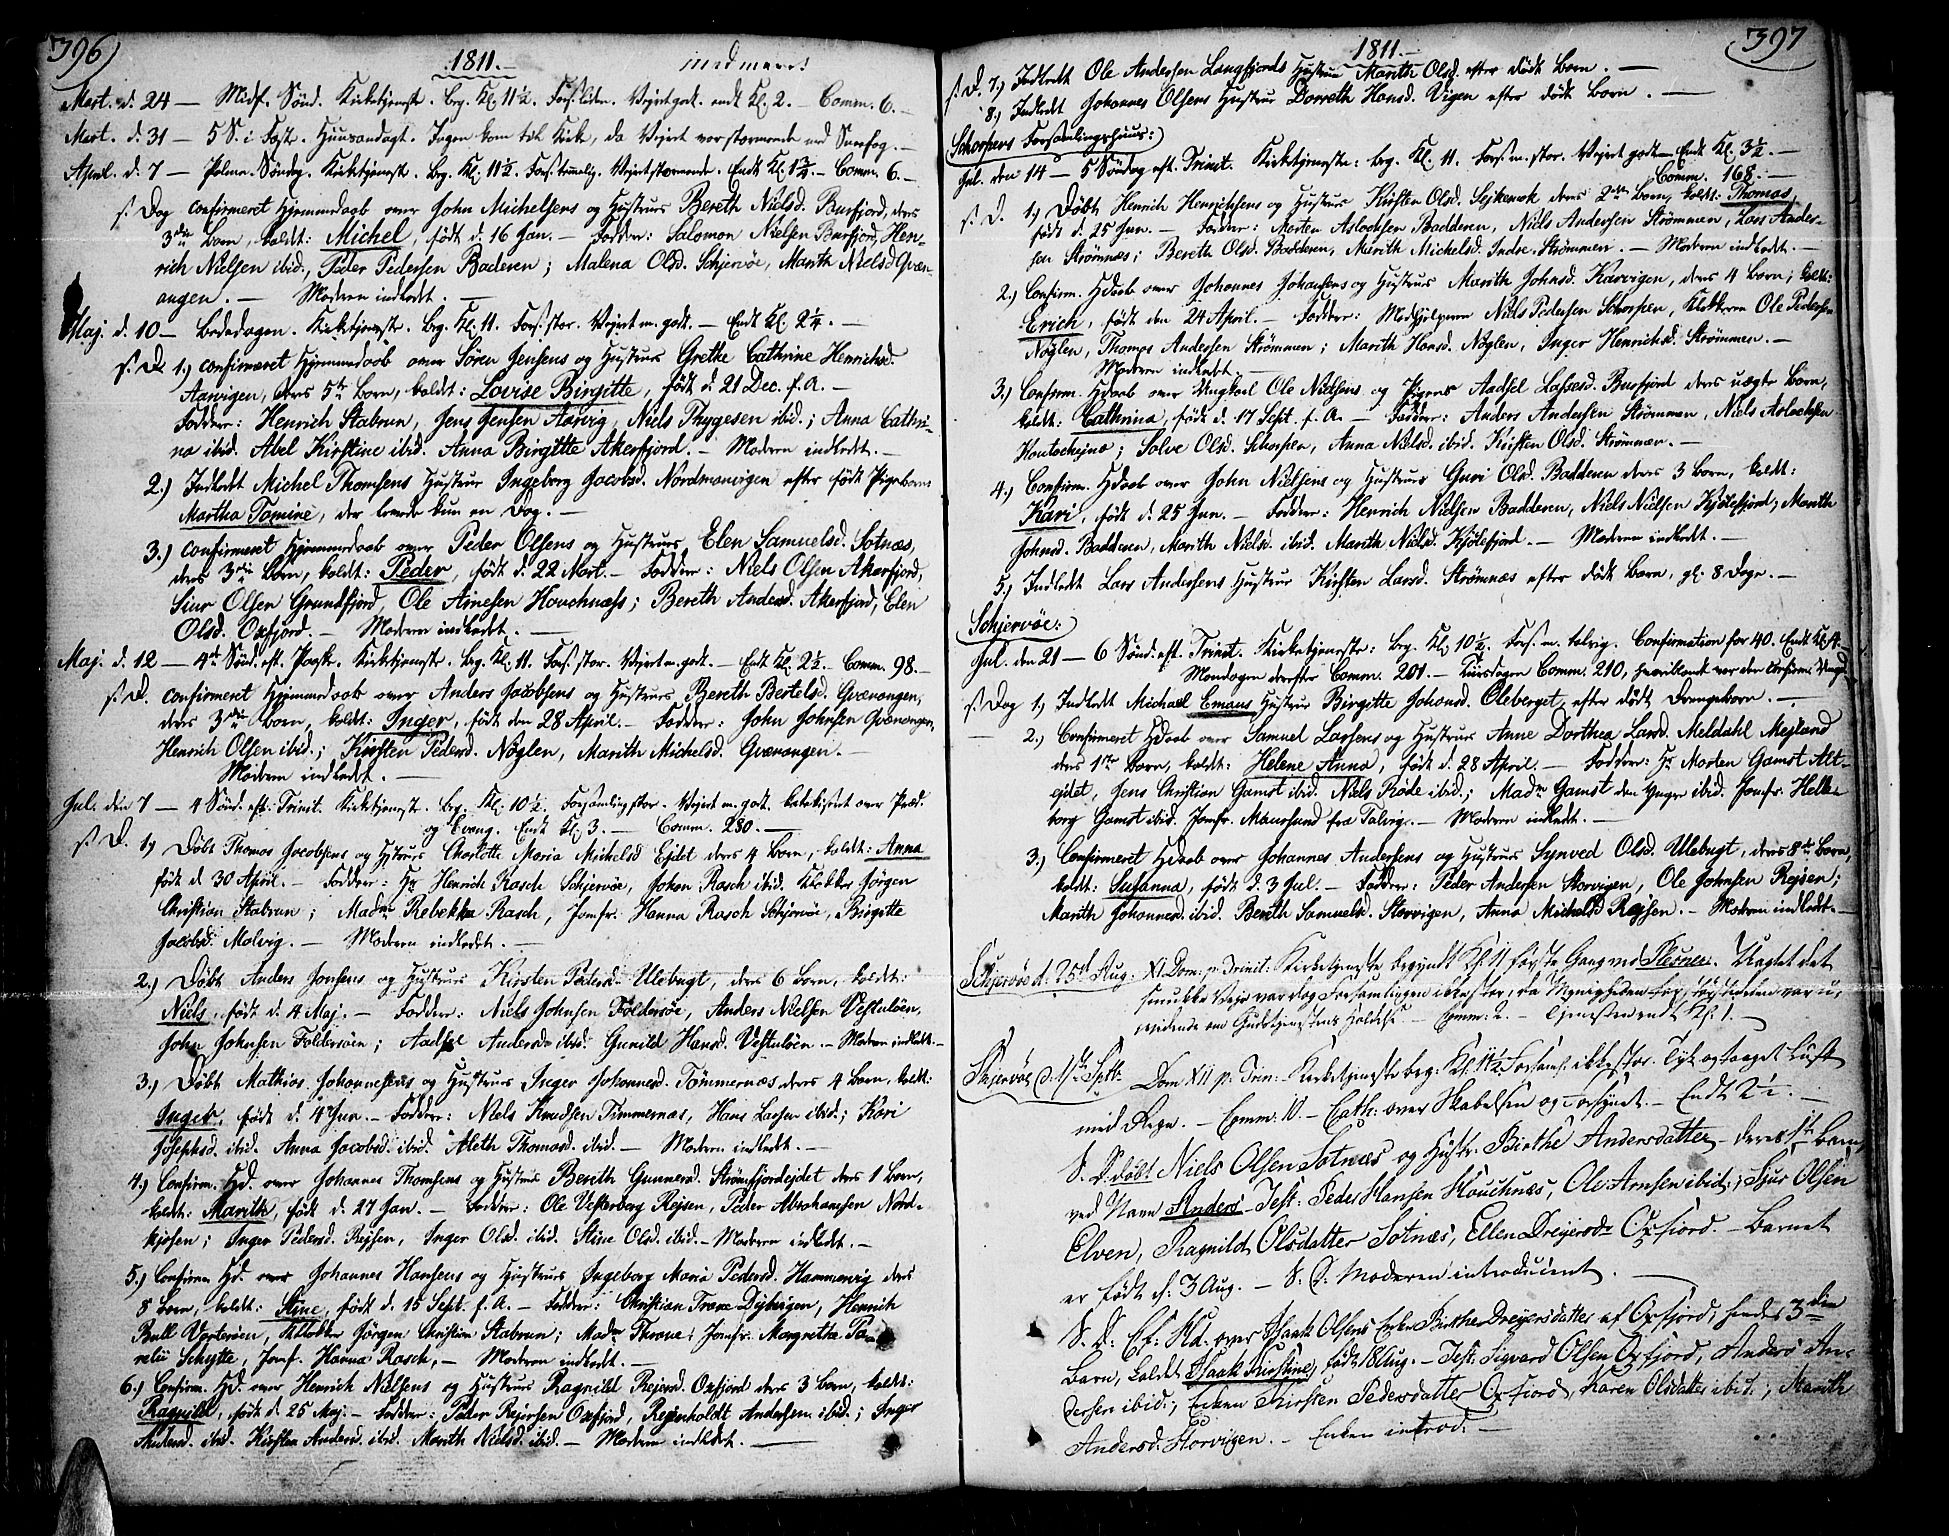 396)
1811.
Mart. d. 24 — Midf. Sönd. Kirketjenest. beg. Kl. 11½. Fors. liden. Veiret godt. endt Kl. 2. — Comm. 6. —
Mart. d. 31 — 5 S. i Fast. Huusandagt. Ingen kom til Kirke, da Veiret var stormende med Sneefog. —
April. d. 7 — Palme-Söndag. Kirketjenest. Beg. Kl. 11½. Fors. taalig. Veiret stormende. Endt Kl. 1¾. — Comm. 6. —
s. Dag confirmeret Hjemmedaab over John Michelsens og Hustrues Bereth Nielsd. Burfjord, deres
3die Barn, kaldt: Michel, född d. 16 Jan. — Faddere: Salomon Nielsen Burfjord, Hen-
rich Nielsen ibid., Peder Pedersen Baderen; Malena Olsd. Schjervöe, Marith Nielsd. Qvæn-
angen. — Moderen indledet. —
Maj. d. 10 — Bededagen. Kirketjenest. beg. Kl. 11. Fors. stor. Veiret m. godt. — Endt Kl. 2¼. —
s. D. 1.) confirmeret Hjemmedaab over Sören Jensens og Hustrues Grethe Cathrine Henrichsd.
Aarvigen, deres 5te Barn, kaldt: Lovise Birgitte, född d. 21 Dec. f. A. —
Faddere: Henrich Stabrun, Jens Jensen Aarvig, Niels Thygesen ibid.; Anna Cathri-
na ibid. Abel Kirstine ibid. Anna Birgitte Akerfjord. — Moderen indledet. —
2.) Indledt Michel Thomsens Hustrue Ingeborg Jacobsd. Nordmanvigen efter född Pigebarn
Martha Tomine, der levede kun en Dag. —
3.) confirmeret Hjemmedaab over Peder Olsens og Hustrues Elen Samuelsd. Sotnæs,
deres 3die Barn, kaldt: Peder, född d. 22 Mart. — Faddere: Niels Olsen Akerfjord,
Siur Olsen Grundfjord, Ole Arnesen Houchnæss; Bereth Andersd. Akerfjord, Elen
Olsd. Oxfjord. — Moderen indledet. —
Maj. d. 12 — 4de Sönd. eft. Paaske. Kirketjenest. beg. Kl. 11. Fors. stor. Veiret m. godt. — Endt Kl. 2½. Comm. 98. —
s. D. confirmeret Hjemmedaab over Anders Jacobsens og Hustrues Bereth Bertelsd. Qvænangen,
deres 3die Barn, kaldt: Inger, född den 28 April. — Faddere: John Johnsen Qvænangen,
Henrich Olsen ibid.; Kirsten Pedersd. Nöglen, Marith Michelsd. Qvænangen. —
Moderen indledet. —
Jul. den 7 — 4 Sönd. eft. Trinit. Kirketjenest. beg. Kl. 10½. Forsamling stor. Veiret m. godt. katekiseret over Præd.
og Evang. Endt Kl. 3. — Comm. 280. —
s. D. 1.) Döbt Thomas Jacobsens og Hustrues Charlotte Maria Michelsd. Ejdet deres 4 Barn, kaldt: Anna
född d. 30 April. — Faddere: Hr. Henrich Rasch Schjervöe, Johan Rasch ibid. Klokker Jörgen
Christian Stabrun; Mad. Rebekka Rasch, Jomfr. Hanna Rasch Schjervöe, Birgitte
Jacobsd. Molvig. — Moderen indledet. —
2.) Döbt Anders Jonsens og Hustrues Kirsten Pedersd. Ulebugt, deres 6 Barn, kaldt:
Niels, född d. 4 Maj. — Faddere: Niels Johnsen Földersöe, Anders Nielsen Vestulöen,
John Johnsen Földersöen; Aadsel Andersd. ibid. Gunild Hansd. Vestulöen. — Moderen indledet. —
3.) Döbt Mathias Johannesens og Hustrues Inger Johannesd. Tömmernæs deres 4 Barn, kaldt:
Inger, född d. 4 Jun. — Faddere: Niels Knudsen Timmernæs, Hans Larsen ibid.; Kari
Josephsd. ibid. Anna Jacobsd. ibid. Aleth Thomasd. ibid. — Moderen indledet. —
4.) Confirm. Hd. over Johannes Thomsens og Hustrues Bereth Gunnersd. Strömfjordejdet deres 1 Barn,
kaldt: Marith, född d. 27 Jan. — Faddere: Ole Vesterberg Rejsen, Peder Abrahamsen Nord-
kjosen; Inger Pedersd. Rejsen, Inger Olsd. ibid. Stine Olsd. ibid. — Moderen indledet. —
5.) Confirm. Hd. over Johannes Hansens og Hustrues Ingeborg Maria Pedersd. Hammervig deres
8 Barn, kaldt: Stine, född d. 15 Sept. f. A. — Faddere: Christian Trane Dybvigen, Henrich
Bull Vorterøen, Klokker Jörgen Christian Stabrun; Mad. Throne; Jomfr. Margretha
Schytte, Jomf. Hanna Rasch, — Moderen indledet. —
6.) Confirm. Hd. over Henrich Nielsens og Hustrues Ragnild Rejersd. Oxfjord deres 3 Barn, kaldt:
Ragnild, född d. 25 Maj. — Faddere: Peder Rejersen Oxfjord, Rejenholdt Andersen ibid.; Inger
Andersd. ibid. Kirsten Andersd. ibid. Marith Nielsd. ibid. — Moderen indledet. —
1811.
(397
s. D. 7.) Indledt Ole Andersen Langfjords Hustrue Marith Olsd. efter födt Barn. —
8.) Indledet Johannes Olsens Hustrue Dorreth Hansd. Vigen efter födt Barn. —
Schorpens Forsamlingshuus:)
Jul. den 14 — 5 Söndag eft. Trinit. Kirketjeneste: beg. Kl. 11. Fors. m. stor. Veiret godt — Endt Kl. 3½. —
Comm. 168. —
s. D. 1.) Döbt Henrich Henrichsens og Hustrues Kirsten Olsd. deres 2det Barn, kaldt: Thomas,
född d. 25 Jun. — Faddere: Morten Aslochsen Badderen, Niels Andersen Strömmen, Lars Ander-
sen Strömnæs; Bereth Olsd. Badderen, Marith Michelsd. Indre-Strömmen. — Moderen indledet. —
2.) Confirm. Hdaab over Johannes Johansens og Hustrues Marith Johnsd. Karvigen, deres 4 Barn; kaldt:
Erich, född den 24 April. — Faddere: Medhjelperen Niels Pedersen Schorpen, Klokkeren Ole Pedersen
Nöglen, Thomas Andersen Strömmen; Marith Hansd. Nöglen, Inger Henrichsd. Strömmen. —
Moderen indledet. —
3.) Confirm. Hdaab over Ungkarl Ole Nielsens og Pigens Aadsel Lassesd. Burfjord deres uægte Barn,
kaldt: Cathrina, född d. 17 Sept. f. A. — Faddere: Anders Andersen Strömmen, Niels Aslochsen
Koutocheino; Solve Olsd. Schorpen, Anna Nielsd. ibid. Kirsten Olsd. Strömmen. —
4.) Confirm. Hdaab over John Nielsens og Hustrues Guri Olsd. Badderen deres 3 Barn, kaldt:
Kari, född d. 25 Jun. — Faddere: Henrich Nielsen Badderen, Niels Nielsen Kjölefjord; Marith
Johnsd. Badderen, Marith Nielsd. ibid. Marith Nielsd. Kjölefjord. — Moderen indledet. —
5.) Indledt Lars Andersens Hustrue Kirsten Larsd. Strömnæs efter födt Barn, gl. 8 Dage. —
Schjervöe:
Jul. den 21 — 6 Sönd. eft. Trinit. Kirketjeneste: beg. Kl. 10½. Fors. m. talrig. Confirmation for 40. Endt Kl. 4.
Mandagen derefter Comm. 201. — Tiirsdagen Comm. 210, hvoriblandt var den confirm. Ungd.
s. Dag 1.) Indledt Michael Emaus Hustrue Birgitte Johansd. Oleberget, efter födt Drengebarn. —
2.) Confirmeret Hdaab over Samuel Larsens og Hustrues Anne Dorthea Larsd. Meldahl Mejland
deres 1ste Barn, kaldt: Helene Anna, född d. 28 April. — Faddere: Hr. Morten Gamst Alt-
ejdet, Jens Christian Gamst ibid. Niels Röde ibid.; Mad. Gamst den Yngre ibid. Jomfr. Helle-
borg Gamst ibid. Jomfr. Maursund fra Talvig. — Moderen indledet. —
3.) Confirmeret Hdaab over Johannes Andersens og Hustrues Synved Olsd. Ulebugt, deres 8de Barn,
kaldt: Susanna, född d. 3 Jul. — Faddere: Peder Andersen Storvigen, Ole Johnsen Rejsen;
Marith Johannesd. ibid. Bereth Samuelsd. Storvigen, Anna Michelsd. Rejsen. — Moderen indledet. —
Skjervöe d: 25de Aug: XI Dom: p. Trinit: Kirketjeneste begyndt Kl 11 förste Gang ved Stesner. Uagtet det
smukke Vejr var dog Forsamlingen ikke stor, da Menigheden var u-
vidende om Gudstjenestens Holdelse. — Comm: 2. — Tjenesten endt Kl. 1. —
Skjervöe d: 1ste Sptt: Dom XII p: Trin: Kirketjeneste beg: Kl 11½ Forsaml: ikke stor. Tyk og taaget Luft
med Regn. — Comm: 10 — Cath: over Skabelsen og Forsynet. — Endt 2½. —
S. D. döbt Niels Olsen Sotnæs og Hustr. Birthe Andersdatter deres 1ste Barn
ved Navn Anders — Test: Peder Hansen Houchnæs, Ole Arnsen ibid:; Sjur Olsen
Elven, Ragnild Olsdatter Sotnæs, Ellen Dreyersdr Oxfiord. — Barnet
er födt d: 3 Aug. — S. D. Moderen introduceret. —
S. D: Cf: Hd: over Isaak Olsens Enke Birthe Dreyersdatter af Oxfjord, hendes 3die
Barn, kaldet Isaak Kirstine, födt 18 Aug. — Test: Sigvard Olsen Oxfjord, Anders An-
dersen ibid:, Enken Kirsten Pedersdatter Oxfiord, Karen Olsdatter ibid:, Marith
Andersd. Storvigen. — Enken introd: —